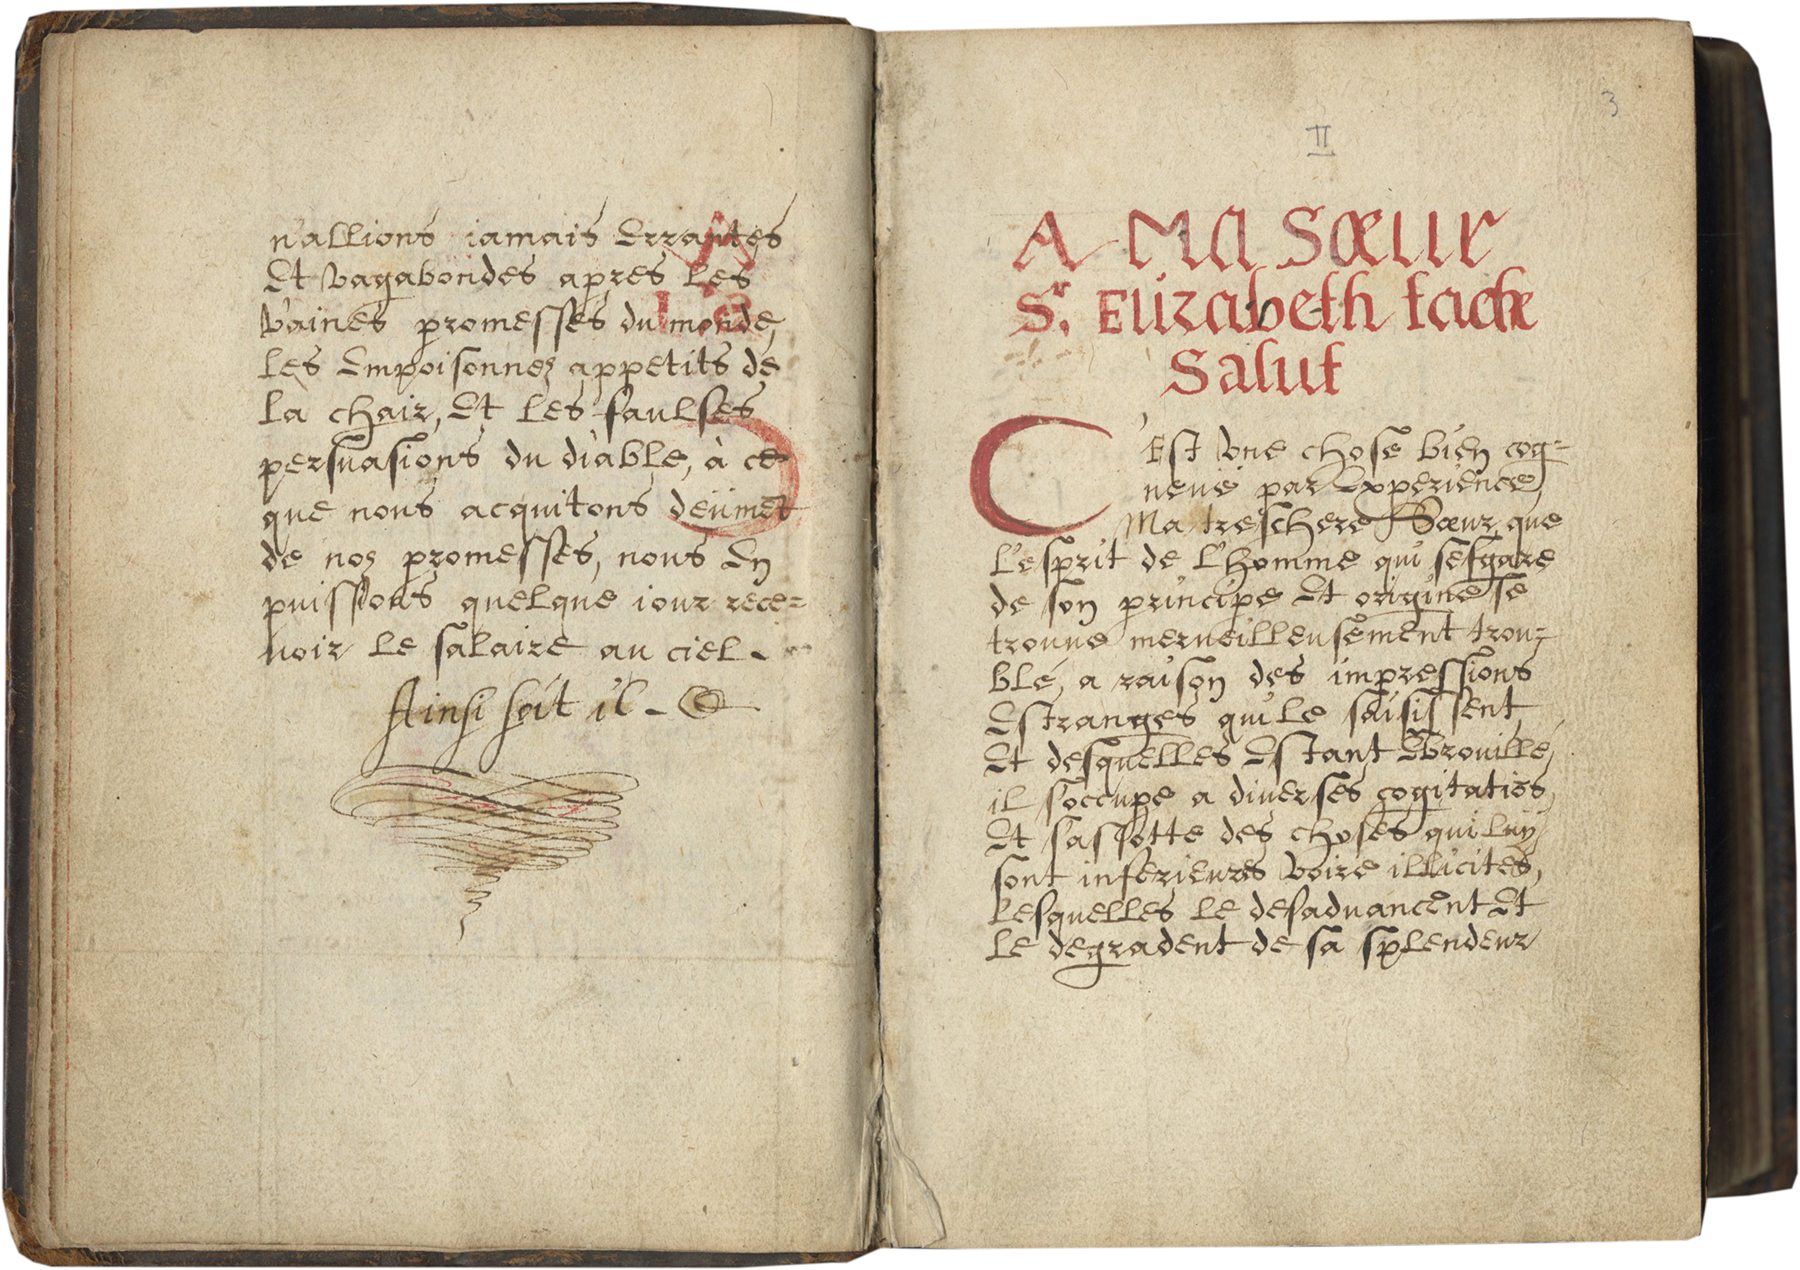 n'allions iamais errantes
et vagabondes apres les
vaines promesses du monde,
les empoisonnez appetits de
la chair, et les faulses
persuasions du diable, à ce
que nous acquitons deüment
de noz promesses, nous en
puissions quelque iour rece=
uoir le salaire au ciel.
Ainsi soit il.
3
II
A MA Sœur
Sr. Elizabeth tache
Salut
C'Est vne chose bien cog=
neüe par experience,
Ma treschere Sœur, que
l'esprit de l'homme qui sesgare
de son principe et origine se
trouue merueilleusement trou=
blé, a raison des impressions
estranges qui le saisissent,
et desquelles estant ebrouillé,
il s'occupe a diuerses cogitatiõs,
et s'assotte des choses qui luy
sont inferieures voire illicites,
lesquelles le desaduancent et
le degradent de sa splendeur